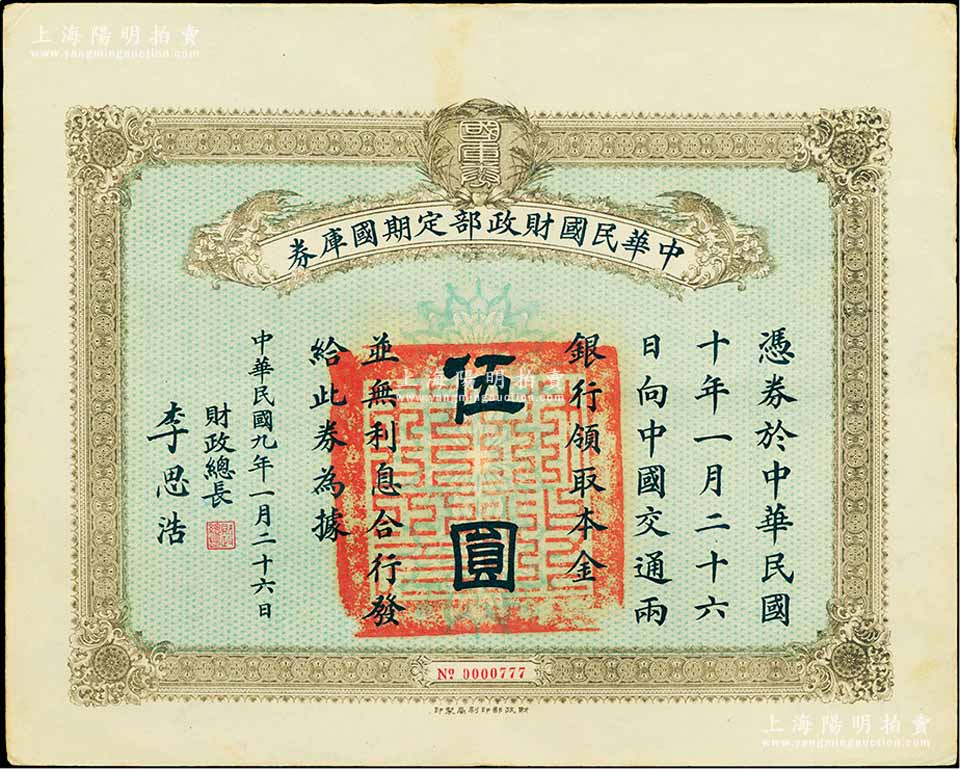 上海陽明拍賣
www.yangmingauction.com
國庫券
中華民國財政部定期國庫券
憑券於中華民國
十年一月二十六
日向中國交通兩
銀行領取本金
伍圓
並無利息合行發
給此券為據
中華民國九年一月二十六日
財政總長
李思浩
上海陽明拍賣
www.yangmingauction.com
No 0000777
財政部印刷局製印
上海陽明拍賣
www.yangmingauction.com